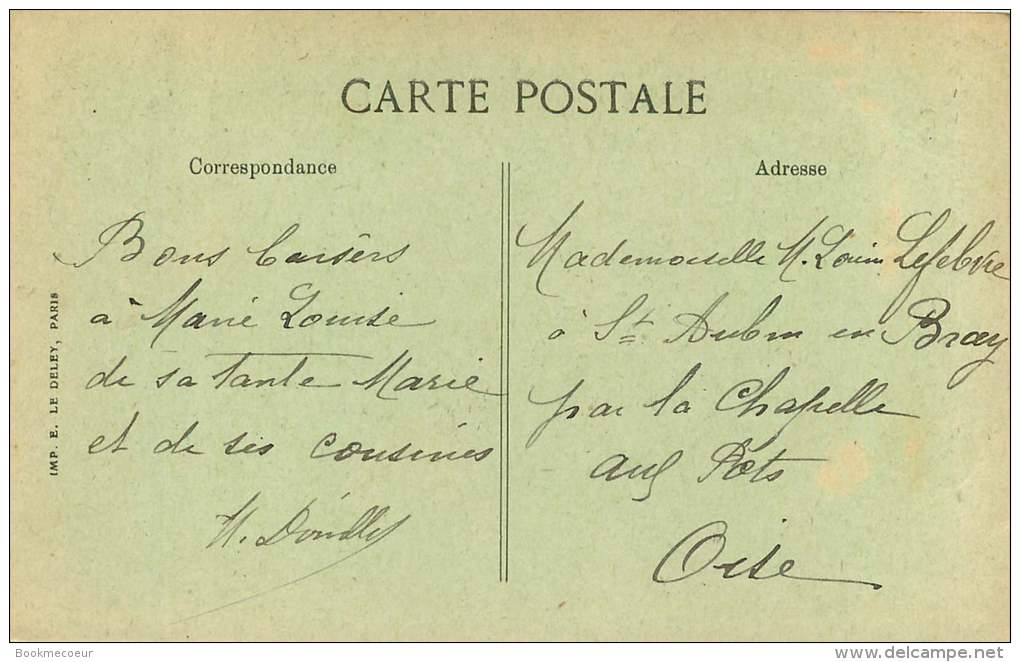 CARTE POSTALE
Correspondance
Bons baisers
à Marie Louise
de sa Tante Marie
et de ses cousines
Adresse
Mademoiselle M. Louise Lefebvre
à St Aubin en Bray
par la Chapelle
aux Pots
Oise
IMP. E. LE DELEY, PARIS
Bookmecoeur
delcampe.net